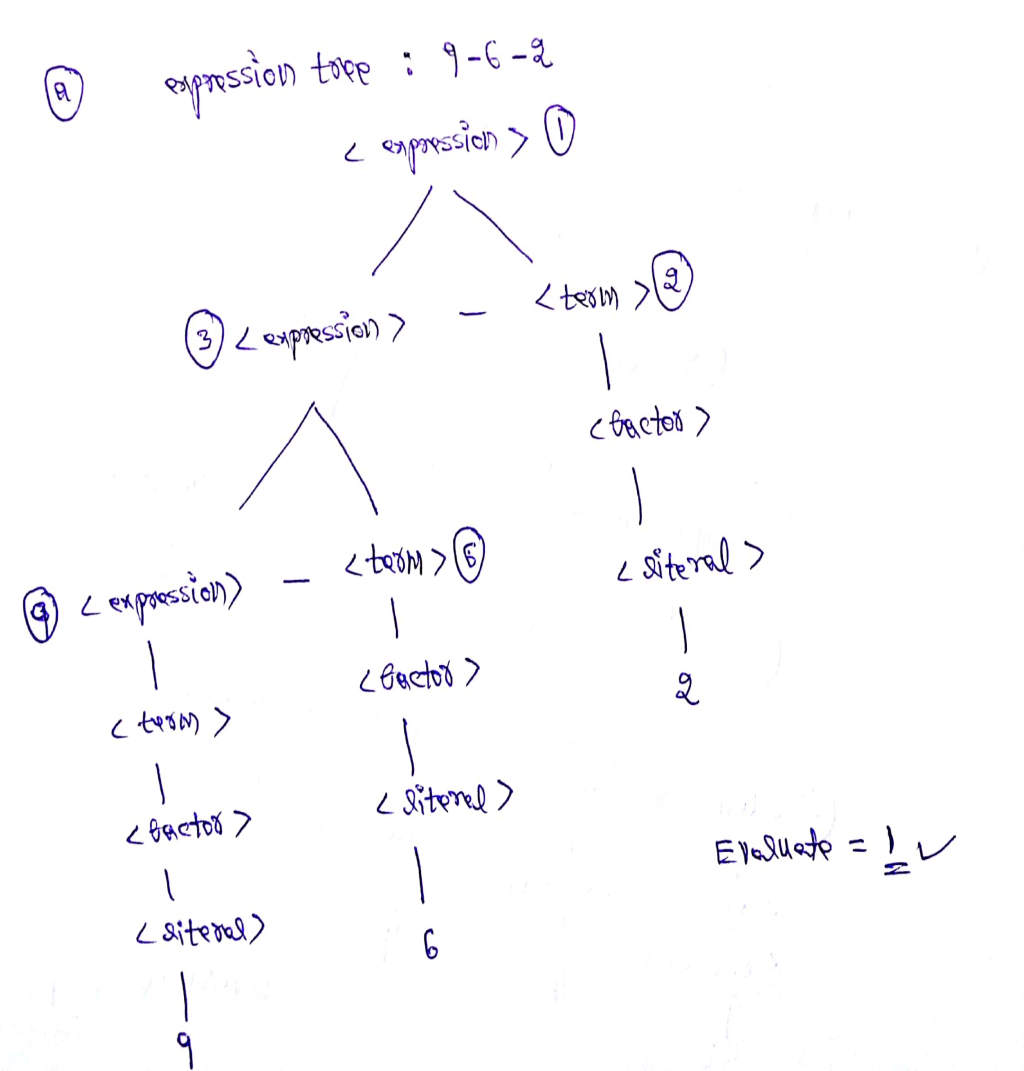 a expression tree : 9-6-2
< expression > 1
3 < expression > - < term > 2
< factor >
9 < expression > - < term > 6 < literal >
< factor > 2
< term >
< literal >
< factor >
Evaluate = 1 ✓
< literal > 6
9